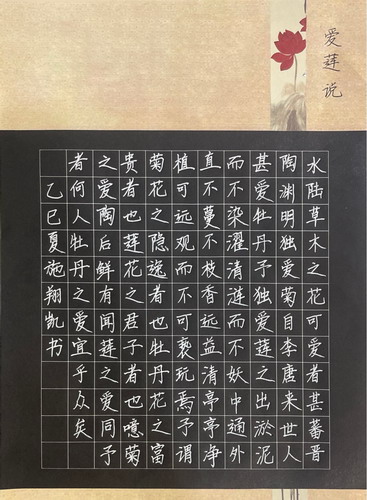 爱莲说
水陆草木之花可爱者甚蕃晋
陶渊明独爱菊自李唐来世人
甚爱牡丹予独爱莲之出淤泥
而不染濯清涟而不妖中通外
直不蔓不枝香远益清亭亭净
植可远观而不可亵玩焉予谓
菊花之隐逸者也牡丹花之富
贵者也莲花之君子者也噫菊
之爱陶后鲜有闻莲之爱同予
者何人牡丹之爱宜乎众矣
乙巳夏施翔凯书